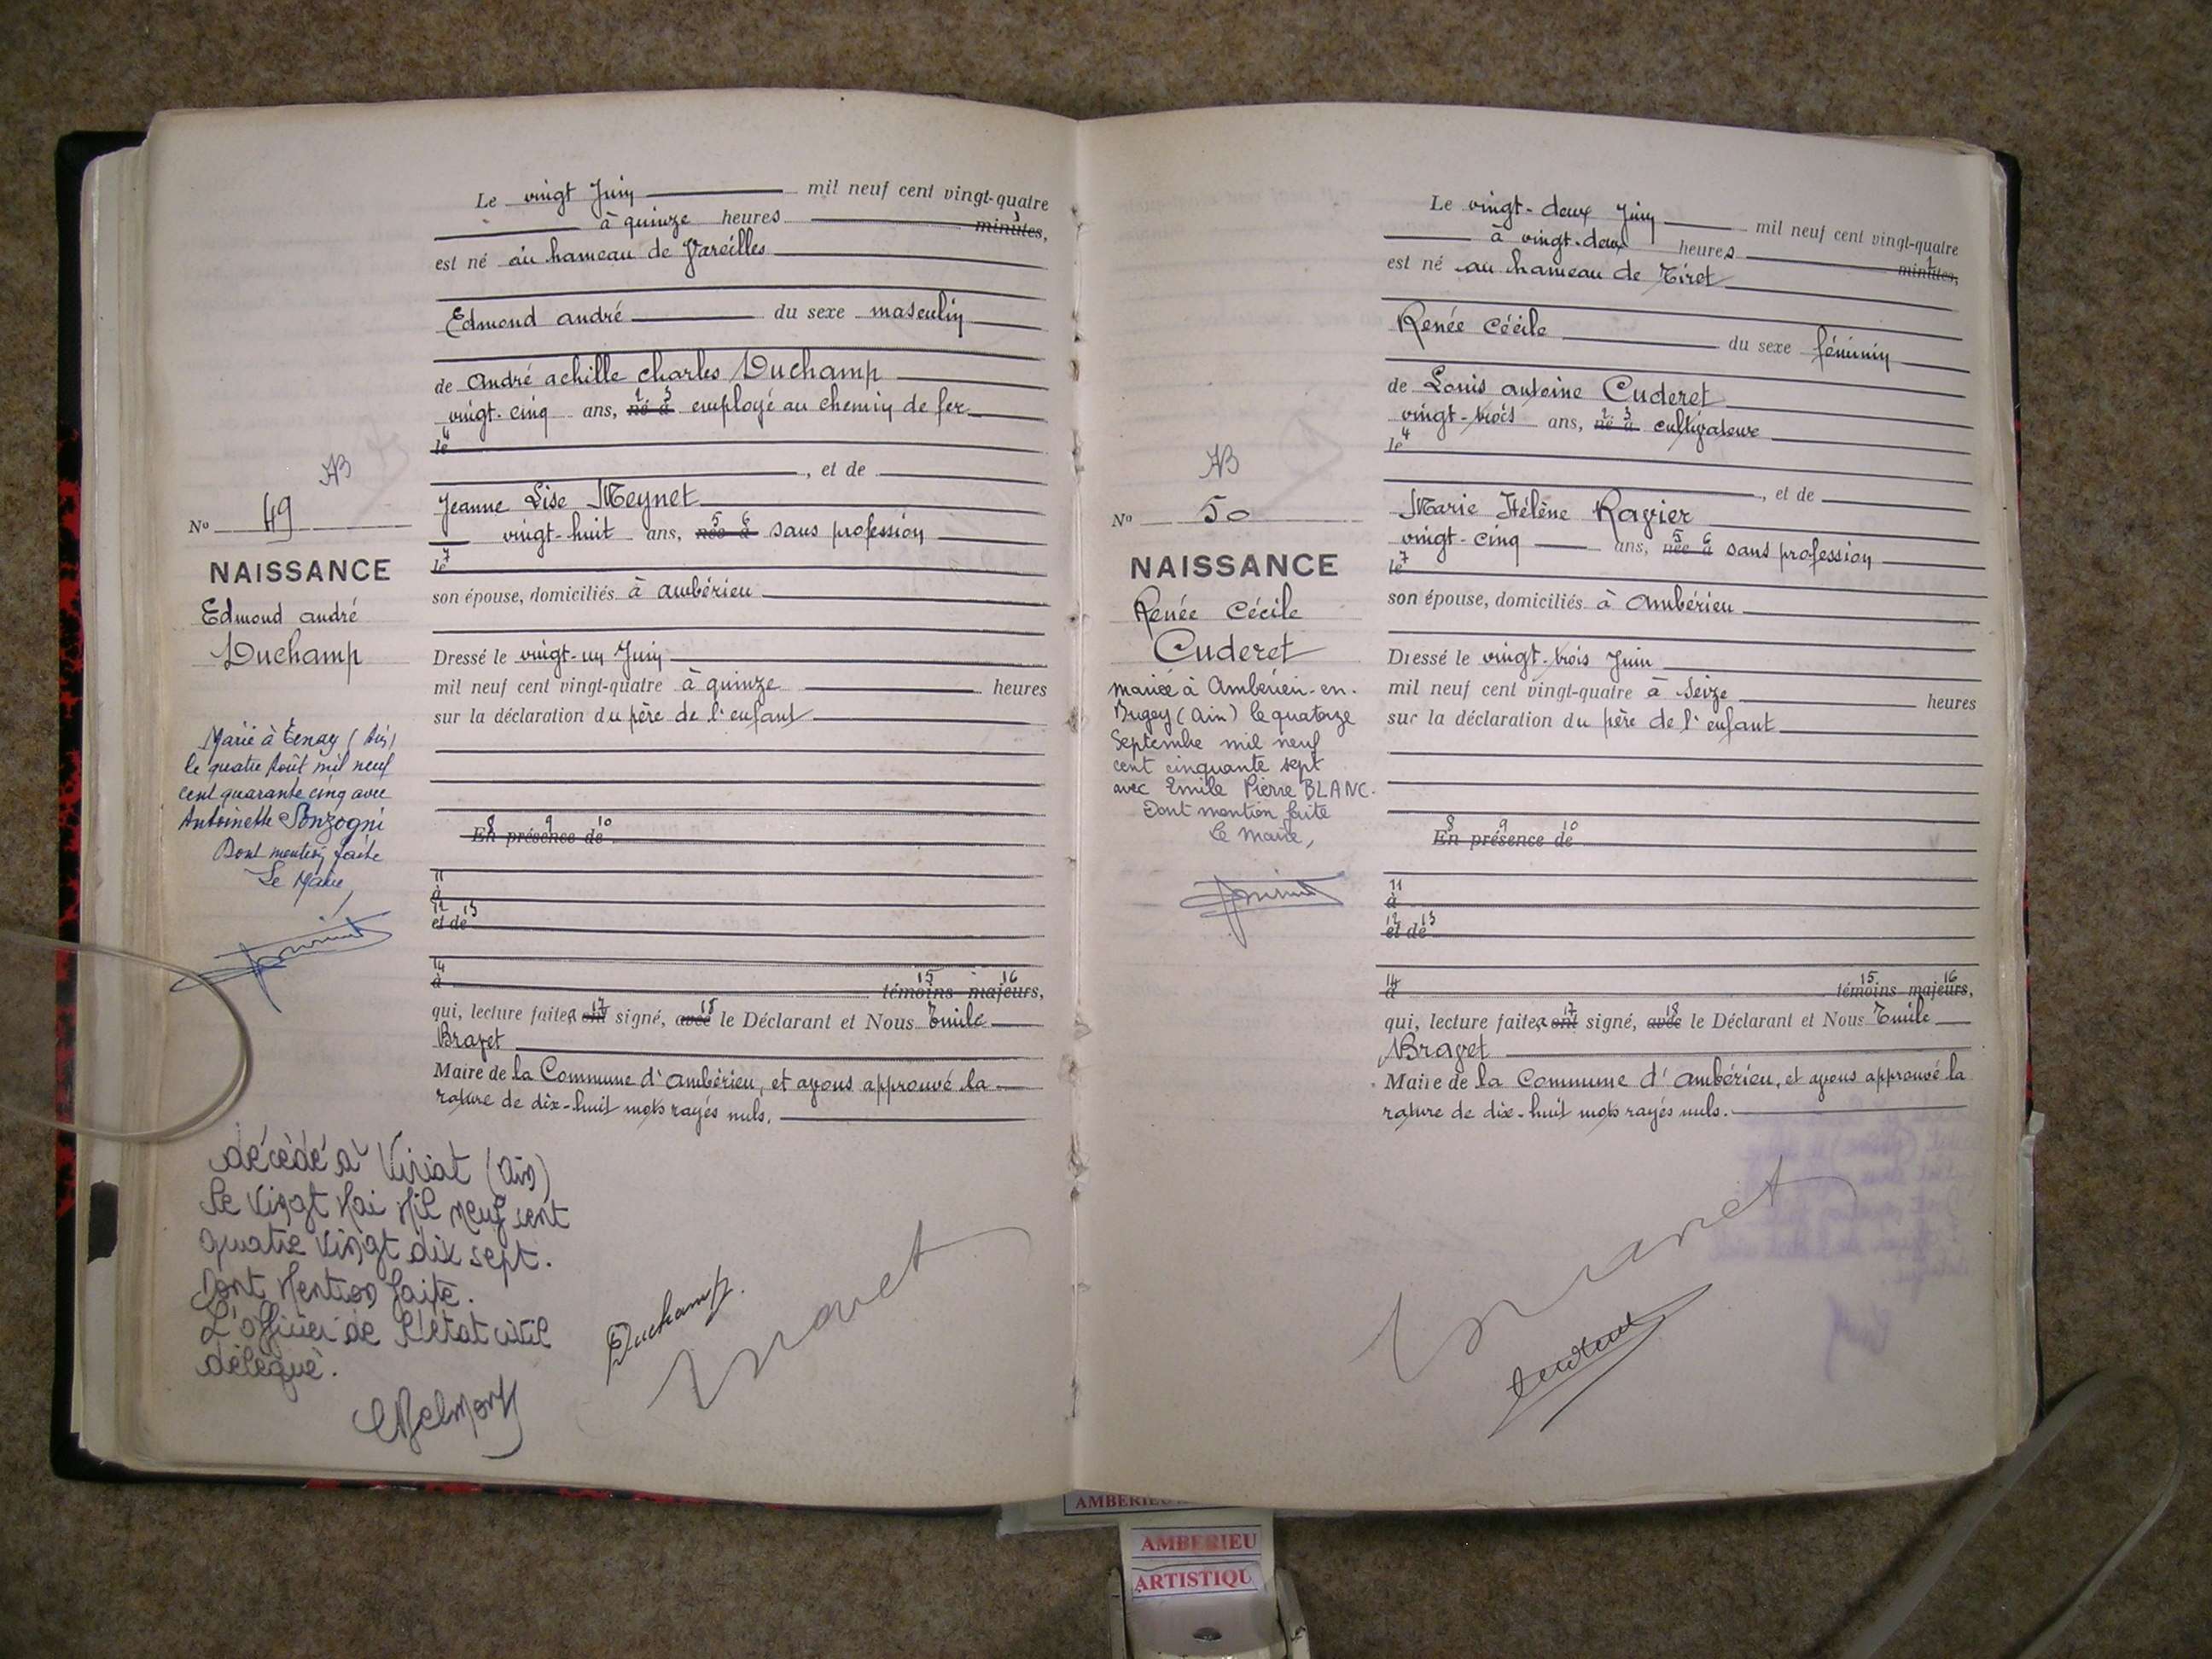 Le vingt Juin mil neuf cent vingt-quatre
à quinze heures minutes,
est né au hameau de Vareilles
Edmond andré du sexe masculin
de André achille charles Duchamp
vingt-cinq ans, né à employé au chemin de fer
le
, et de
Jeanne Lise Meynet
vingt-huit ans, née à sans profession
le
son épouse, domiciliés à ambérieu
Dressé le vingt-un Juin
mil neuf cent vingt-quatre à quinze heures
sur la déclaration du père de l'enfant
En présence de
à
et de
à témoins majeurs,
qui, lecture faite, a ont signé, avec le Déclarant et Nous Emile
Bravet
Maire de la Commune d'ambérieu, et avons approuvé la
rature de dix-huit mots rayés nuls.
AB
No 49
NAISSANCE
Edmond andré
Duchamp
Marié à Tenay (Ain)
le quatre Août mil neuf
cent quarante cinq avec
Antoinette Sonzogni
Dont mention faite
Le Maire,
décédé à Viriat (Ain)
le vingt Mai Mil neuf cent
quatre vingt dix sept.
Dont Mention faite.
L'officier de l'état civil
délégué.
Duchamp.
Bravet
Le vingt-deux Juin mil neuf cent vingt-quatre
à vingt-deux heures minutes,
est né au hameau de Tiret
Renée Cécile du sexe féminin
de Louis antoine Cuderet
vingt-trois ans, né à cultivateur
le
, et de
Marie Hélène Ravier
vingt-cinq ans, née à sans profession
le
son épouse, domiciliés à Ambérieu
Dressé le vingt-trois Juin
mil neuf cent vingt-quatre à seize heures
sur la déclaration du père de l'enfant
En présence de
à
et de
à témoins majeurs,
qui, lecture faite, a ont signé, avec le Déclarant et Nous Emile
Bravet
Maire de la Commune d'ambérieu, et avons approuvé la
rature de dix-huit mots rayés nuls.
AB
No 50
NAISSANCE
Renée Cécile
Cuderet
mariée à Ambérieu-en-
Bugey (Ain) le quatorze
Septembre mil neuf
cent cinquante sept
avec Emile Pierre BLANC.
Dont mention faite
Le Maire,
Bravet
Cuderet
AMBERIEU
AMBERIEU
ARTISTIQU